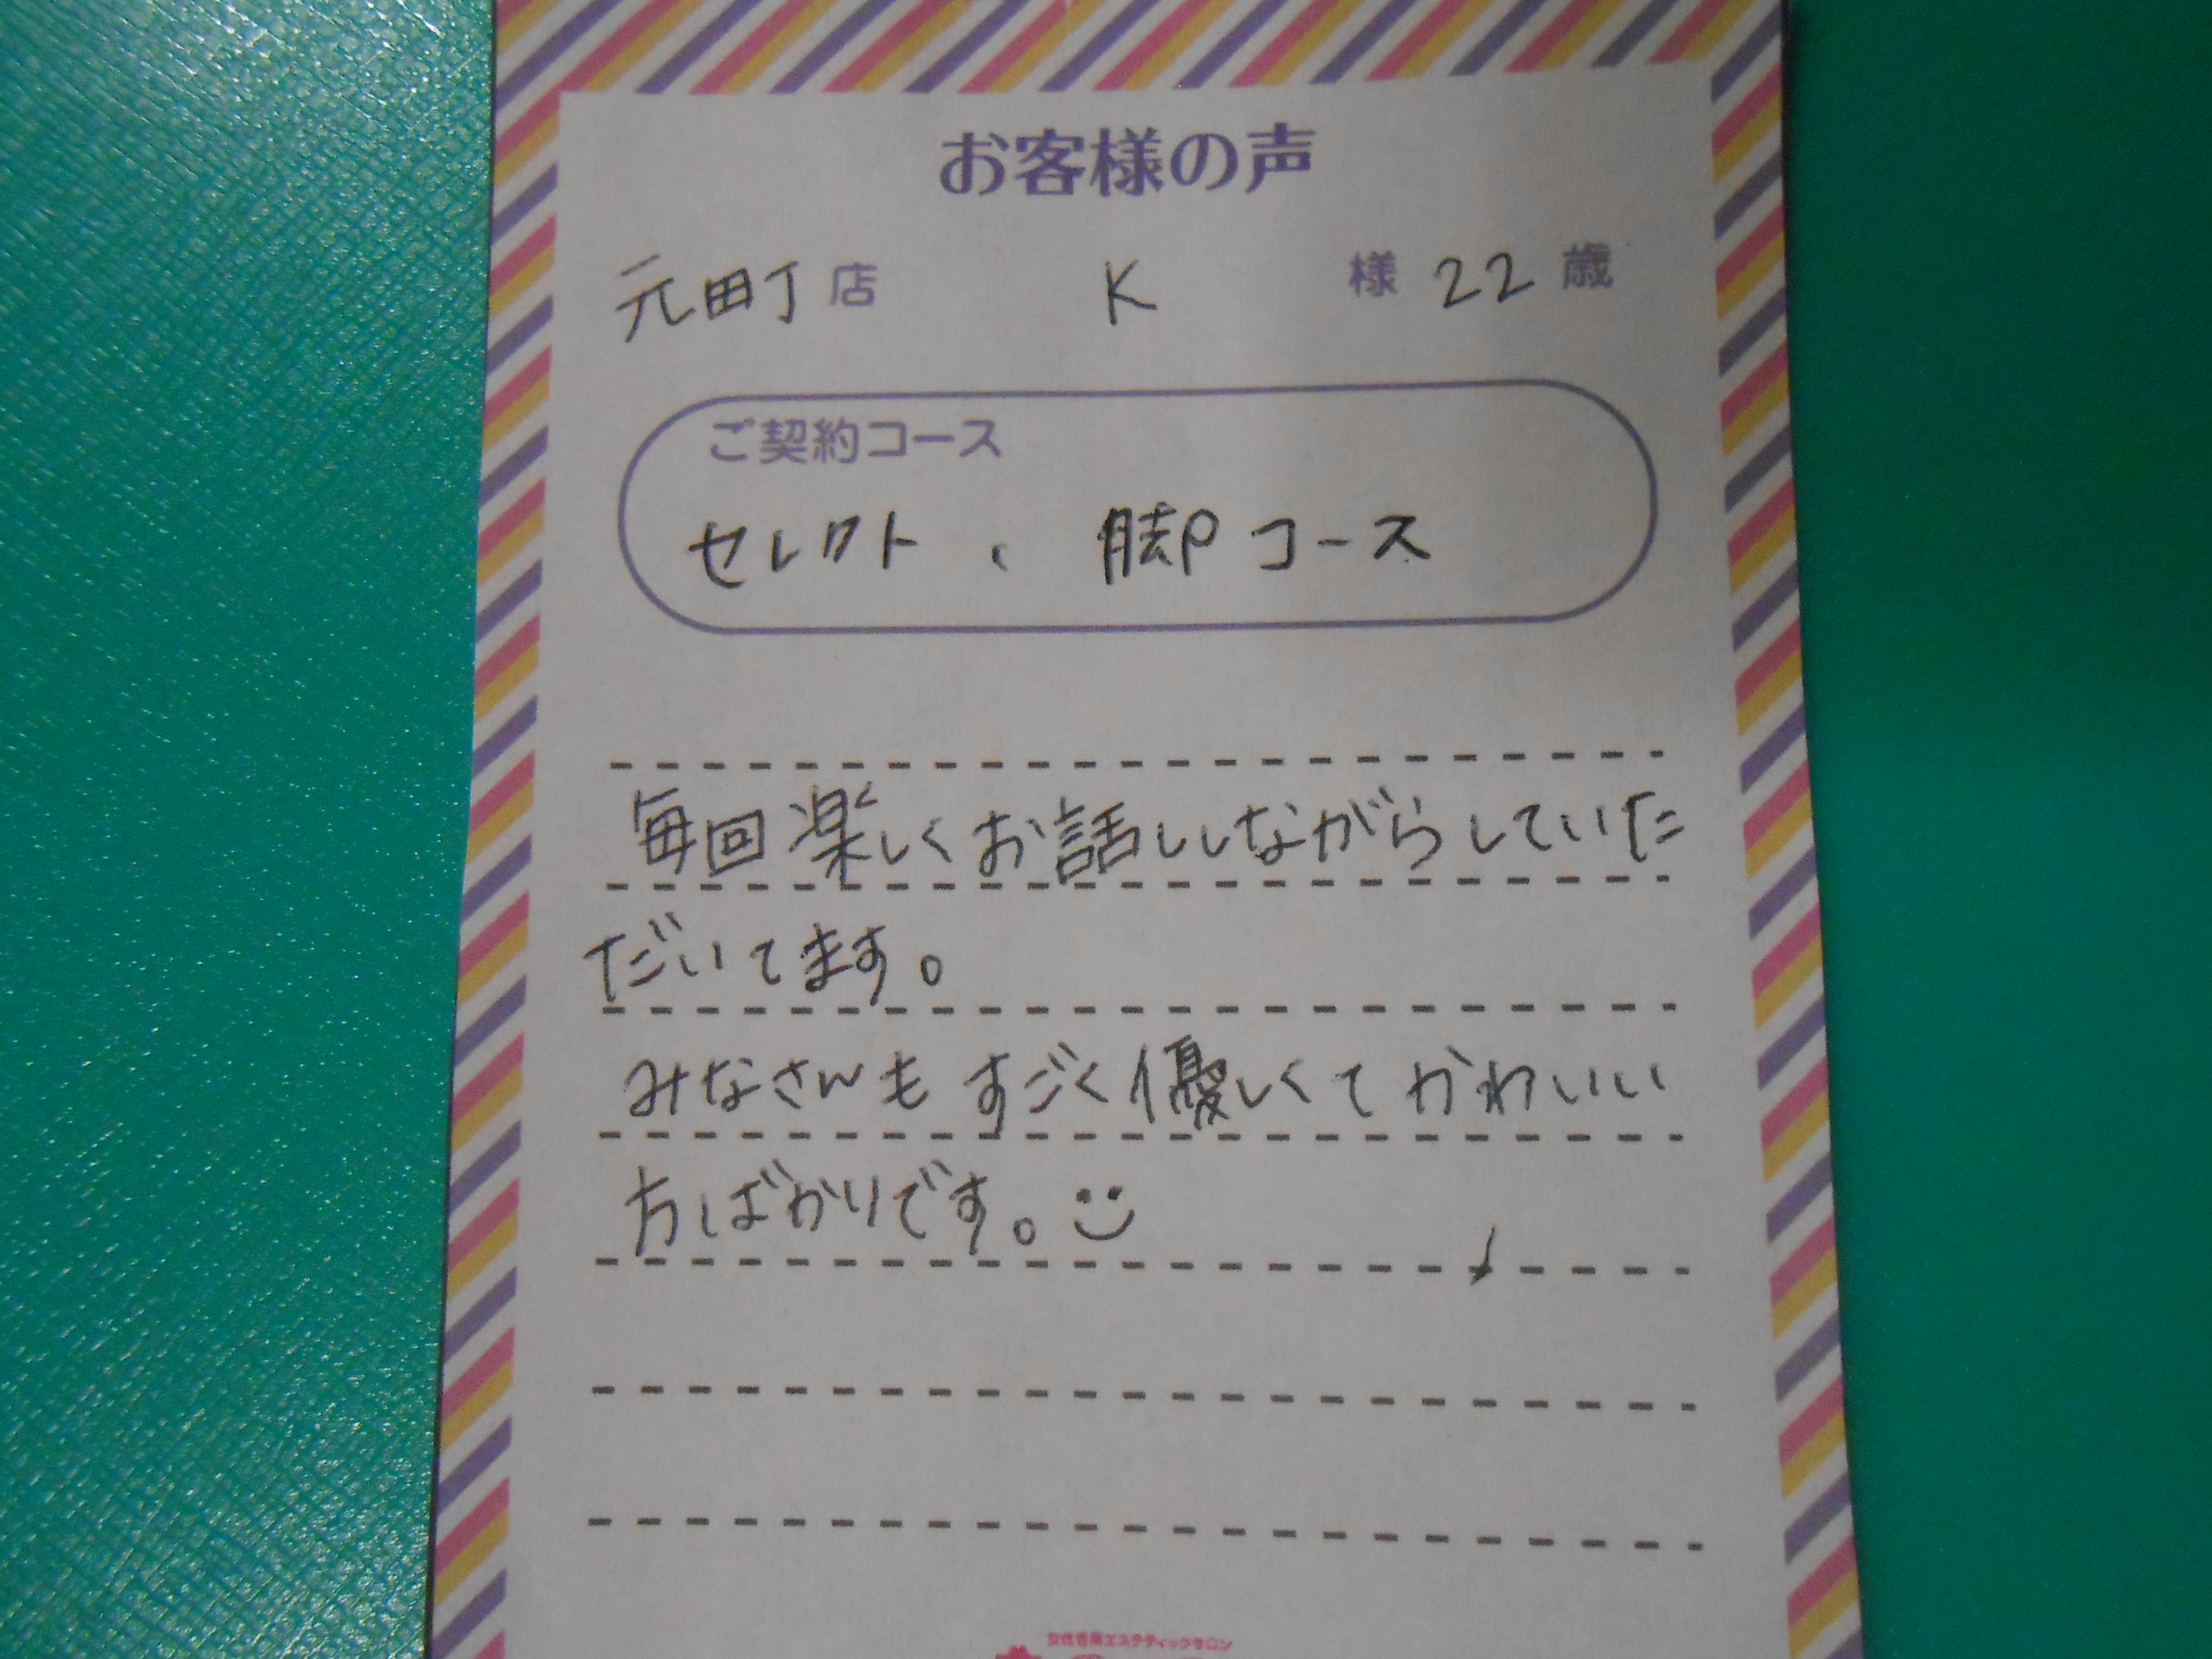 お客様の声
元町店 K 様 22 歳
ご契約コース
セレクト、脚コース
毎回楽しくお話ししながらしていた
だいてます。
みなさんもすごく優しくてかわいい
方ばかりです。☺
女性専用エステティックサロン